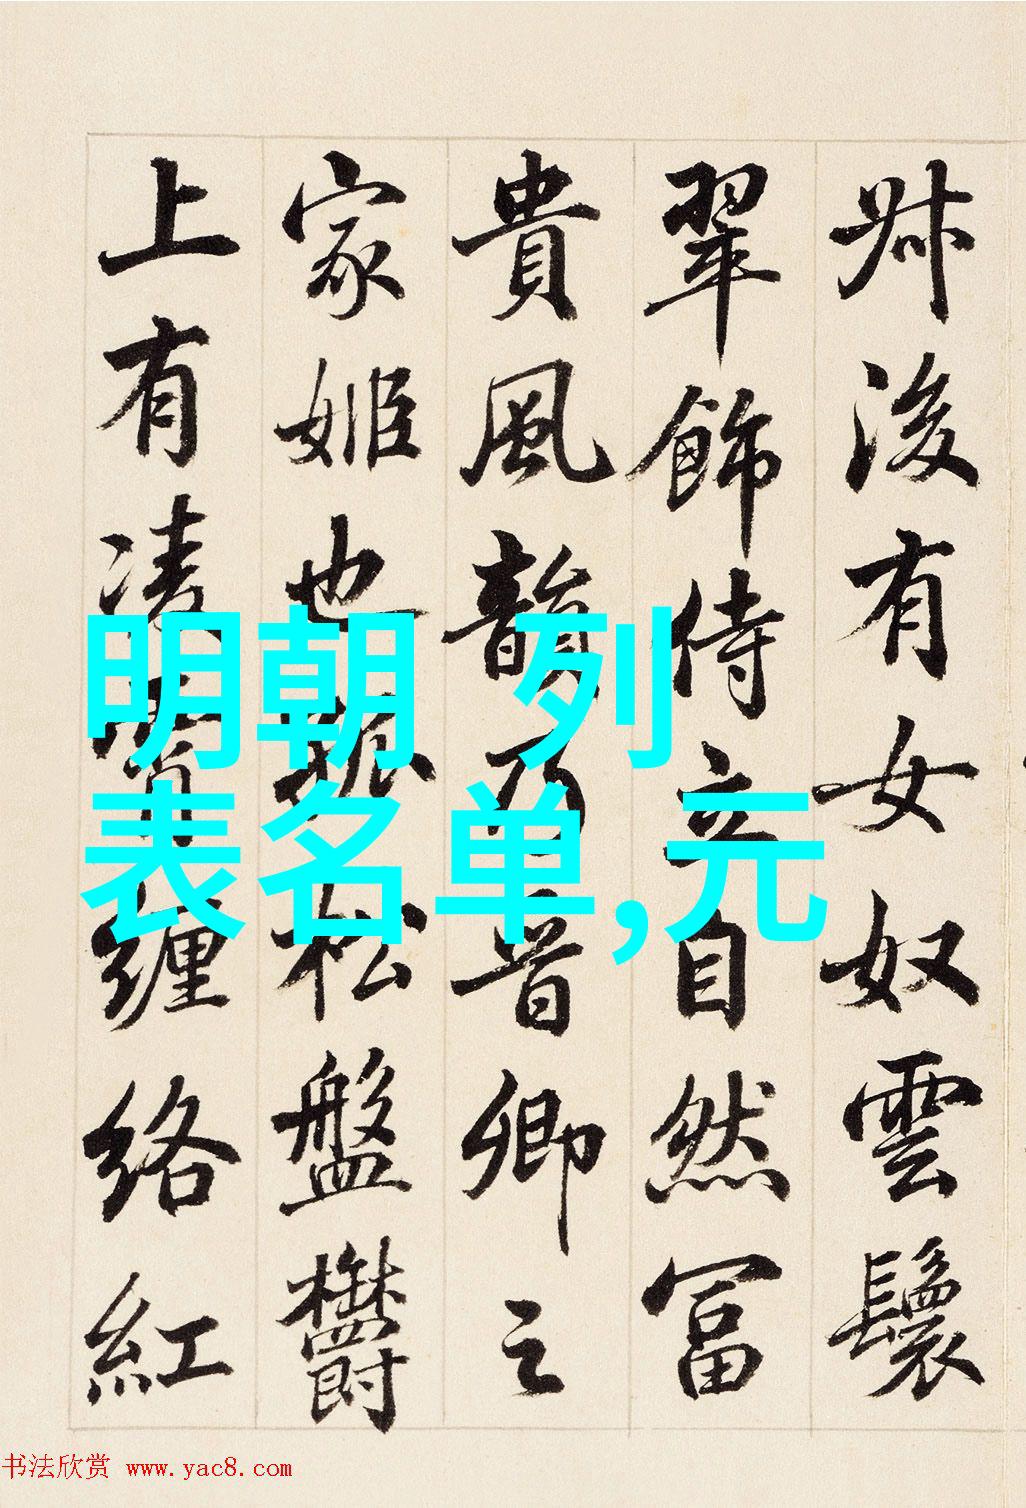 叔後有女奴雲鬟
翠飾侍立自然富
貴風韻乃晋卿之
家姬也孤松盤欝
上有凌霄纏絡紅
明朝 列
表名单,元
书法欣赏 www.yac8.com